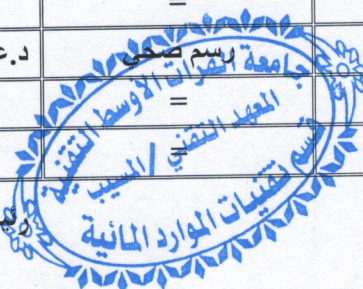 =
رسم صحي
د.ع
=
=
جامعة الفرات الاوسط التقنية
المعهد التقني / المسيب
قسم تقنيات الموارد المائية